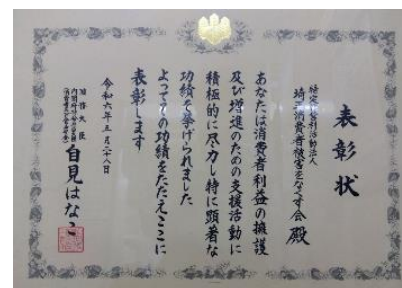 表彰状
特定非営利活動法人
埼玉消費者被害をなくす会 殿
あなたは消費者利益の擁護
及び増進のための支援活動に
積極的に尽力し特に顕著な
功績を挙げられました
よってその功績をたたえここに
表彰します
令和六年五月二十八日
内閣府特命担当大臣
自見はなこ